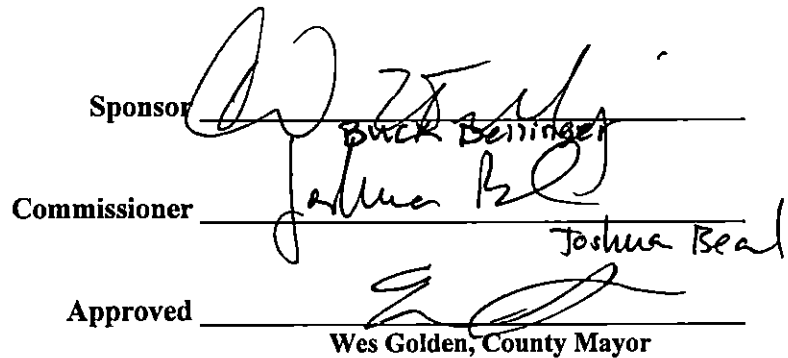 Sponsor
Buck Bellinger
Commissioner Joshua
Joshua Beal
Approved
Wes Golden, County Mayor